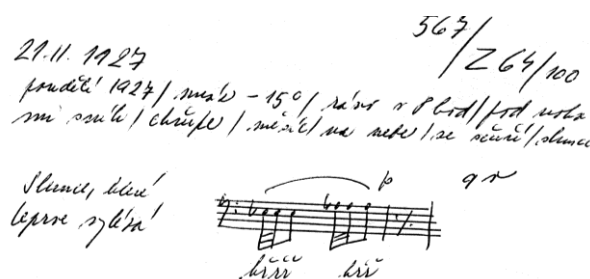 567/Z64/100
21.II.1927
pondělí 1927/ mráz – 15°/ ráno v 8 hod/ pod noha
mi sněží/ chřupe/ měsíc/ na nebe/ se /slunce
Slunce, bledé
teprve vylézá
p
břřř břř